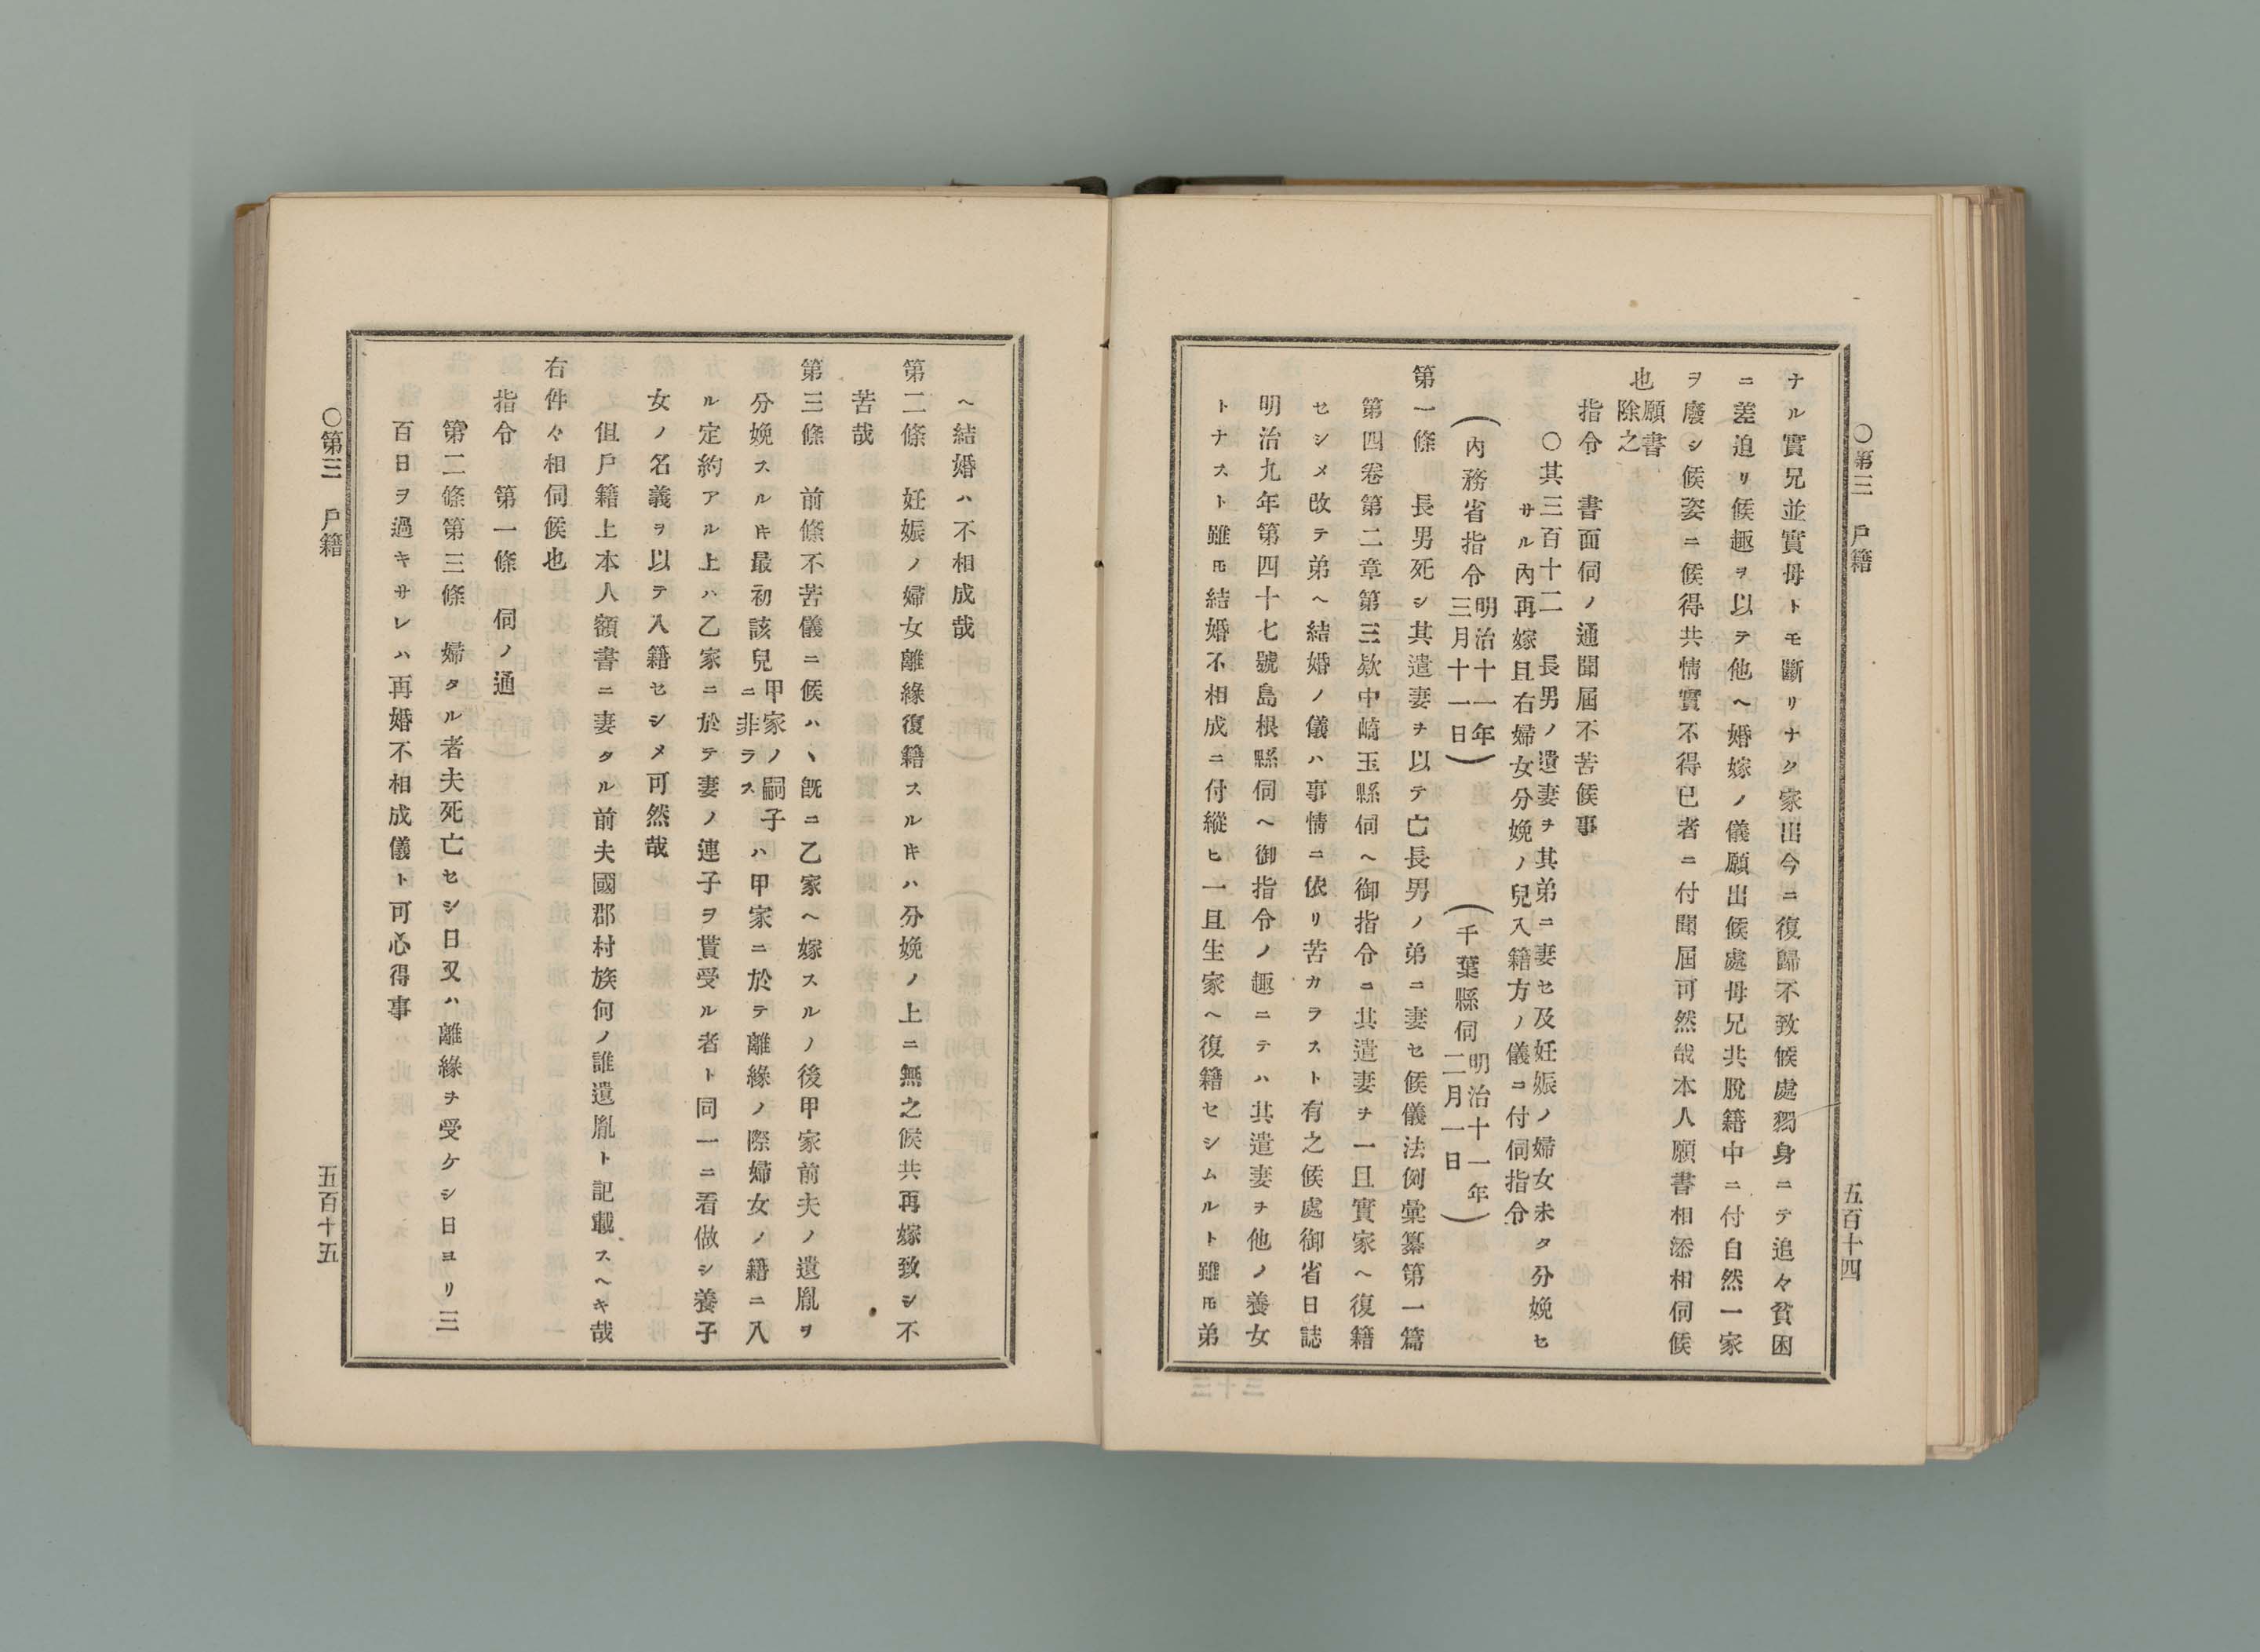 〇第三　戶籍
五百十四
ナル實兄並實母トモ斷リナク家出今ニ復歸不致候處獨身ニテ追々貧困
ニ差迫リ候趣ヲ以テ他ヘ婚嫁ノ儀願出候處母兄共脫籍中ニ付自然一家
ヲ廢シ候姿ニ候得共情實不得已者ニ付聞屆可然哉本人願書相添相伺候
也　願書除之
指令　書面伺ノ通聞屆不苦候事
〇其三百十二　長男ノ遺妻ヲ其弟ニ妻セ及妊娠ノ婦女未タ分娩セ
サル內再嫁且右婦女分娩ノ兒入籍方ノ儀ニ付伺指令
（內務省指令明治十一年三月十一日）　（千葉縣伺明治十一年二月一日）
第一條　長男死シ其遺妻ヲ以テ亡長男ノ弟ニ妻セ候儀法例彙纂第一篇
第四卷第二章第三欵中崎玉縣伺ヘ御指令ニ其遺妻ヲ一旦實家ヘ復籍
セシメ改テ弟ヘ結婚ノ儀ハ事情ニ依リ苦カラスト有之候處御省日誌
明治九年第四十七號島根縣伺ヘ御指令ノ趣ニテハ其遺妻ヲ他ノ養女
トナスト雖𪜈結婚不相成ニ付縱ヒ一旦生家ヘ復籍セシムルト雖𪜈弟
ヘ結婚ハ不相成哉
第二條　妊娠ノ婦女離緣復籍スルキハ分娩ノ上ニ無之候共再嫁致シ不
苦哉
第三條　前條不苦儀ニ候ハヽ旣ニ乙家ヘ嫁スルノ後甲家前夫ノ遺胤ヲ
分娩スルキ最初該兒甲家ノ嗣子ニ非ラスハ甲家ニ於テ離緣ノ際婦女ノ籍ニ入
ル定約アル上ハ乙家ニ於テ妻ノ連子ヲ貰受ル者ト同一ニ看做シ養子
女ノ名義ヲ以テ入籍セシメ可然哉
但戶籍上本人額書ニ妻タル前夫國郡村族何ノ誰遺胤ト記載スヘキ哉
右件々相伺候也
指令　第一條　伺ノ通
第二條第三條　婦タル者夫死亡セシ日又ハ離緣ヲ受ケシ日ヨリ三
百日ヲ過キサレハ再婚不相成儀ト可心得事
〇第三　戶籍
五百十五